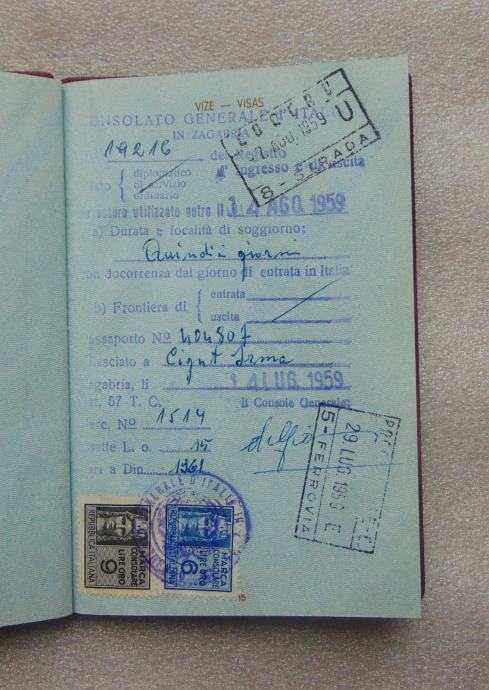 VIZE — VISAS
CONSOLATO GENERALE d'ITA
IN ZAGABRIA
19216 del Registro
d'Ingresso e di uscita
Visto
diplomatico
di servizio
ordinario
essere utilizzato entro il 14 AGO. 1959
a) Durata e località di soggiorno:
Quindici giorni
con decorrenza dal giorno di entrata in Italia
b) Frontiera di
entrata
uscita
Passaporto Nº 404807
rilasciato a Cignt Irma
Zagabria, li 14 LUG. 1959
Art. 57 T. C.
Il Console Generale
Perc. Nº 1514
esatte L. o. 15
pari a Din. 1361
AGO. 1959
U
8 - STRADA
29 LUG 1959 E
5 - FERROVIA
REPUBBLICA ITALIANA
MARCA
CONSOLARE
LIRE ORO
9
MARCA
CONSOLARE
LIRE ORO
6
15